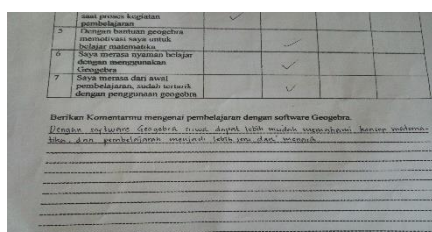 saat proses kegiatan
pembelajaran
5 Dengan bantuan geogebra
memotivasi saya untuk
belajar matematika
6 Saya merasa nyaman belajar
dengan menggunakan
Geogebra
7 Saya merasa dari awal
pembelajaran, sudah tertarik
dengan penggunaan geogebra
Berikan Komentarmu mengenai pembelajaran dengan software Geogebra.
Dengan software Geogebra siswa dapat lebih mudah memahami konsep matema-
tika, dan pembelajaran menjadi lebih seru dan menarik.